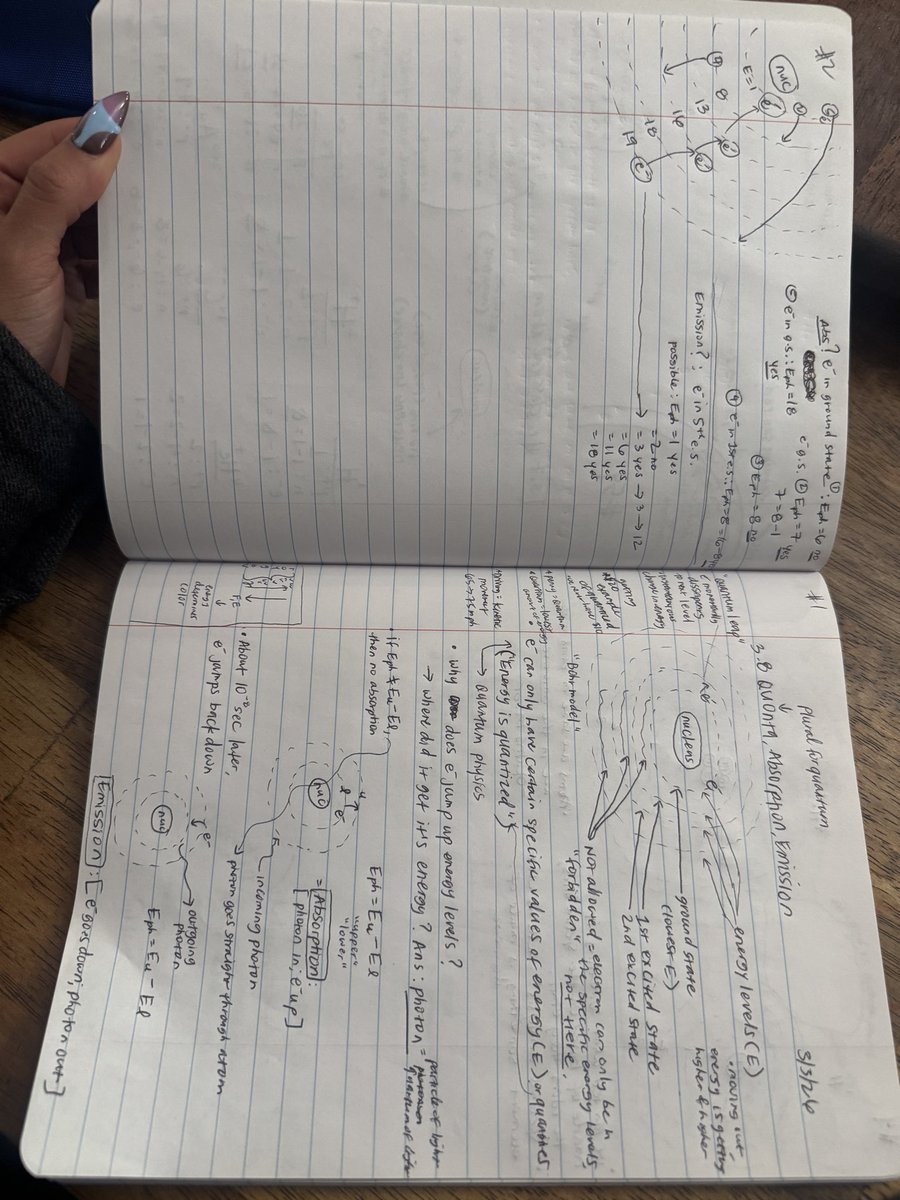 #1
plural for quantum
3/3/26
3.8 Quanta, Absorption, Emission
"quantum leap"
energy levels (E)
• moving out
energy is getting
higher & higher
nucleus
ground state
(lowest E)
1st excited state
2nd excited state
Not allowed = electron can only be in
the specific energy levels,
"forbidden" not there.
"Bohr model"
• e⁻ can only have certain specific values of energy (E) or quantities
("Energy is quantized")
→ quantum physics
• why does e⁻ jump up energy levels?
→ where did it get it's energy? Ans: photon = particle of light
quantum of light
• if Eph ≠ Eu - El,
then no absorption
u
l
e⁻
nuc
Eph = Eu - El
"upper" "lower"
= Absorption:
[photon in; e⁻ up]
incoming photon
photon goes straight through atom
• About 10⁻⁸ sec later,
e⁻ jumps back down
e⁻
nuc
outgoing
photon
Eph = Eu - El
Emission: [e⁻ goes down; photon out]
color
#2
nuc
E=1
8
13
16
18
19
Abs? e⁻ in ground state ①: Eph = 6 no
e⁻ g.s. ② Eph = 7 yes
7 = 8-1
③ Eph = 8 no
④ e⁻ in 1st es: Eph = 8 = 16-8
⑤ e⁻ in g.s.: Eph = 18
yes
Emission?: e⁻ in 5th e.s.
possible: Eph = 1 yes
= 2 no
= 3 yes → 3 → 12
= 6 yes
= 11 yes
= 18 yes